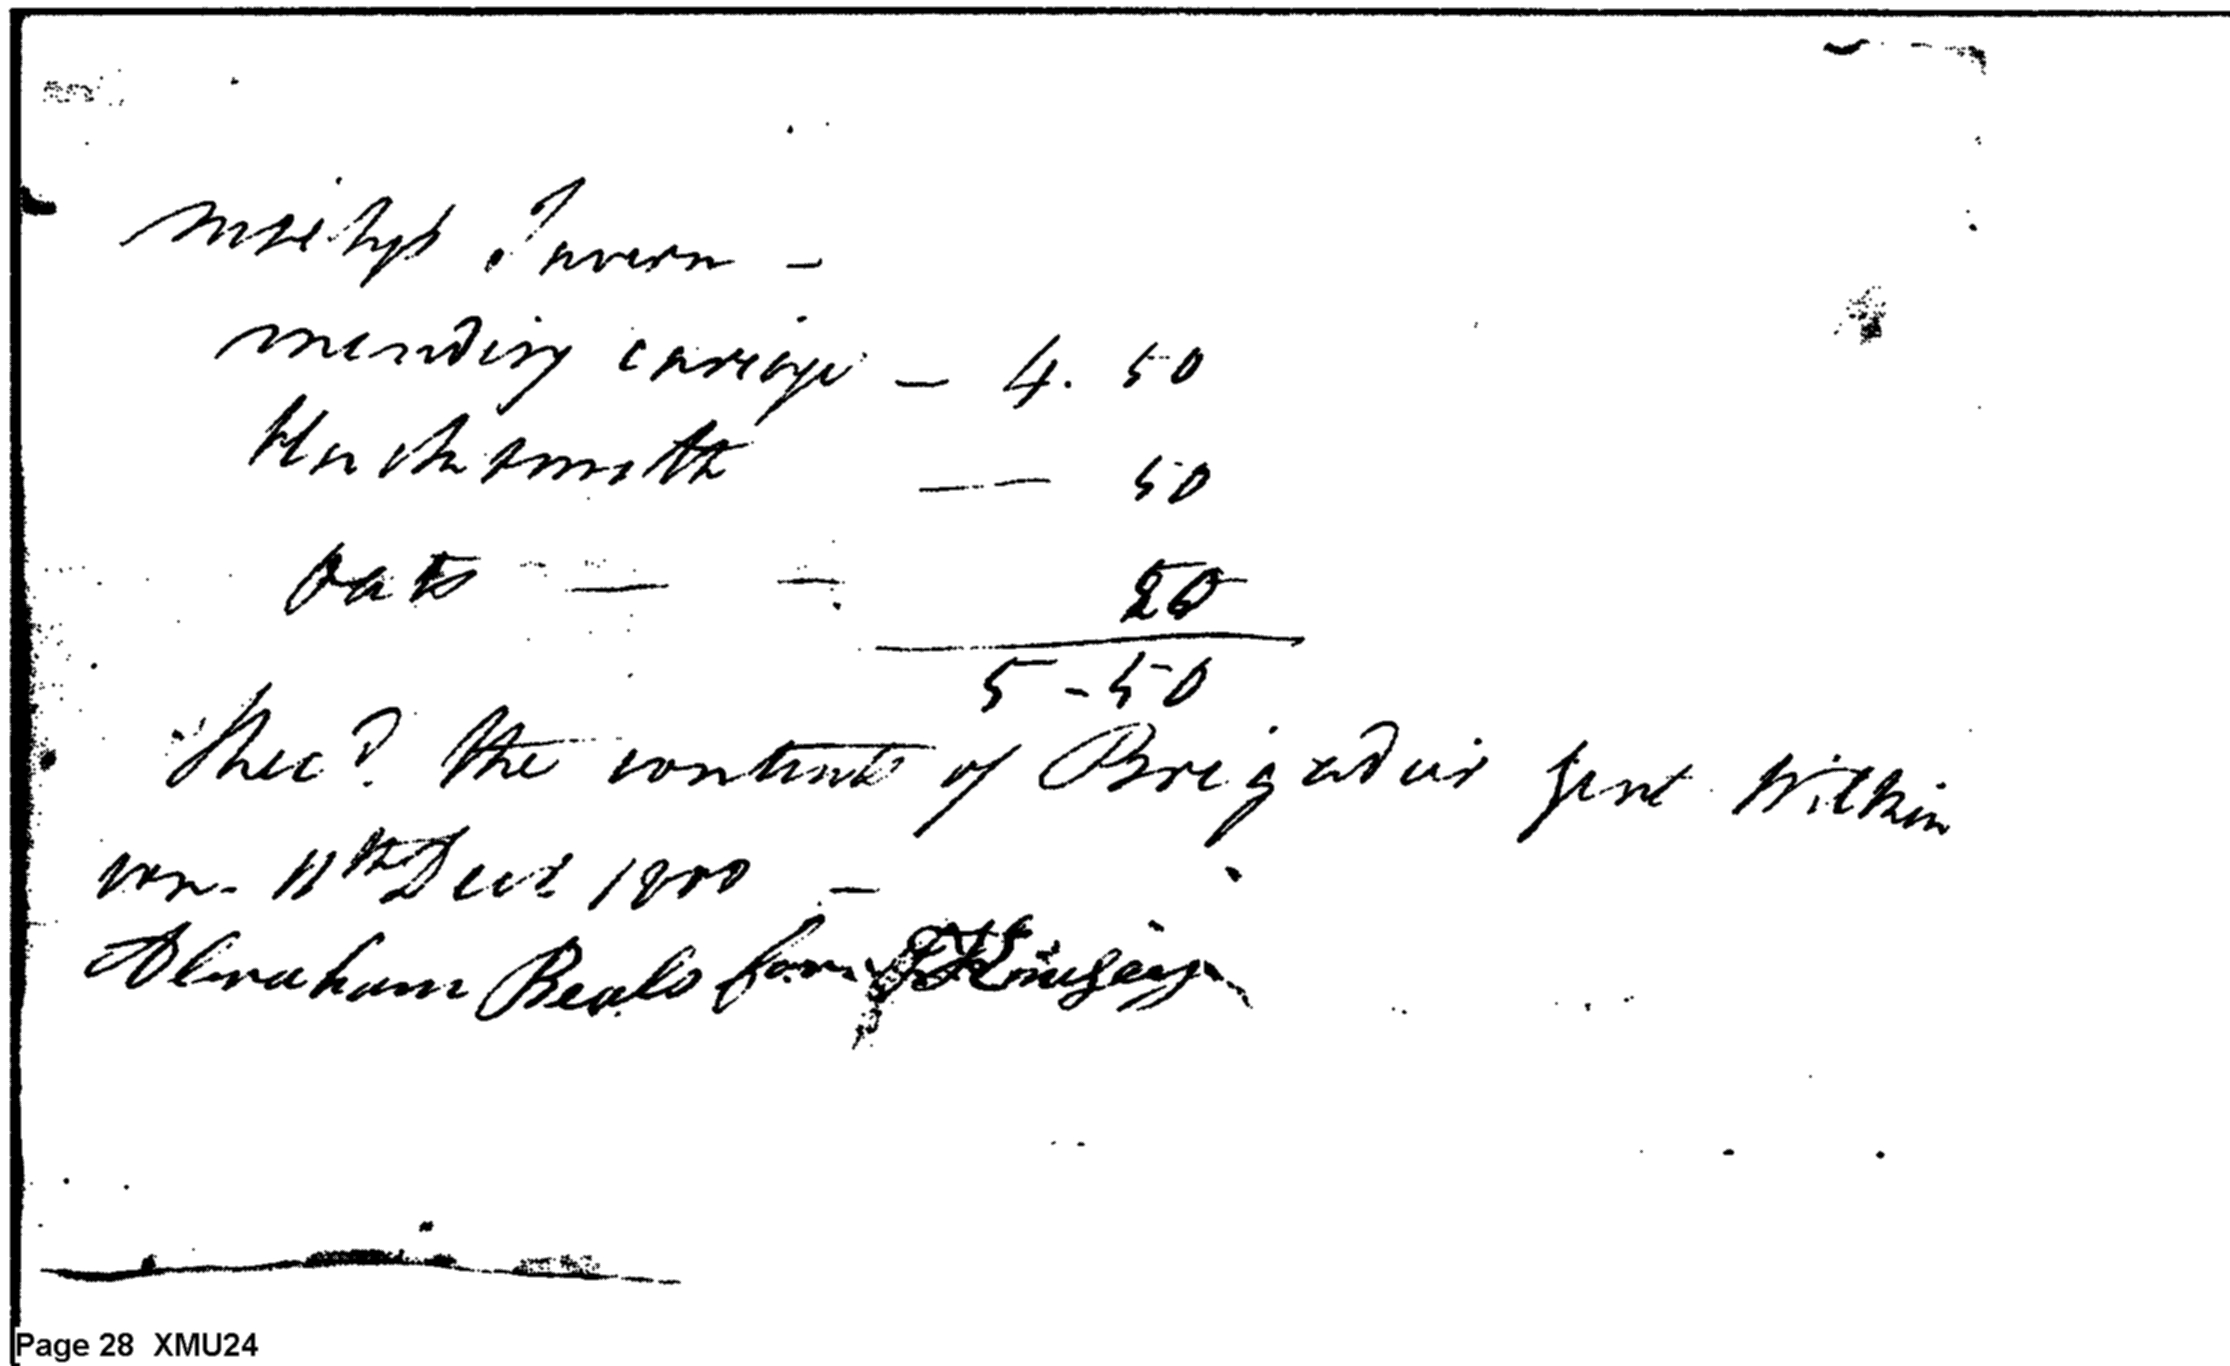 Tavern -
mending cariage - 4. 50
Blacksmith — 50
Oats — — 50
5-50
Rec'd the contents of Brigadier Genl Wilkin
son. 11th Decr 1800 -
Abraham Beals for Kinsey
Page 28 XMU24